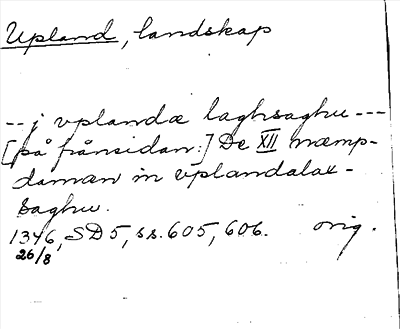 Upland, landskap
-- j vplandæ laghsaghu ---
[på frånsidan:] De XII næmp-
damæn in vplandalax-
saghu.
1346, SD5, ss. 605, 606. orig.
26/8